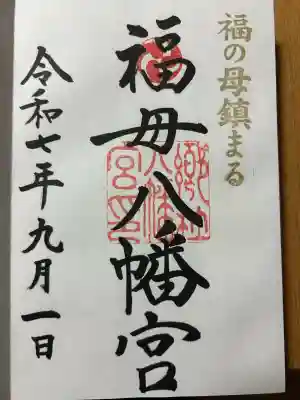 福の母鎮まる
福母八幡宮
福
郷社
八幡
宮印
令和七年九月一日